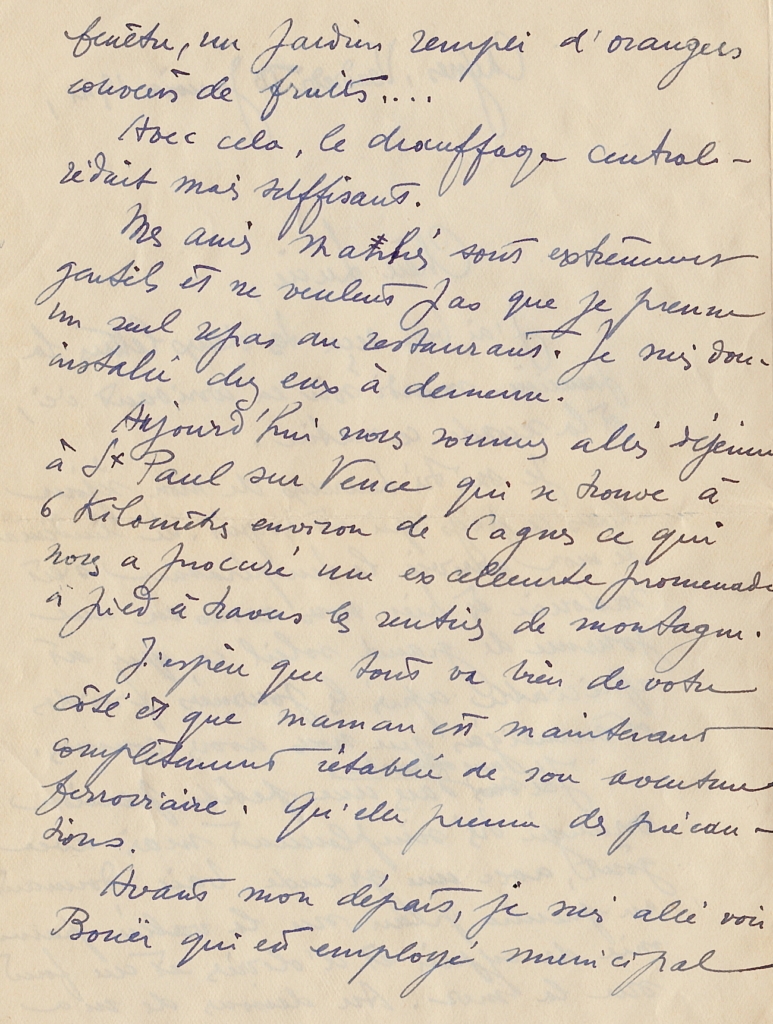 fenêtre, un jardin rempli d'orangers
couverts de fruits....
Avec cela, le chauffage central -
réduit mais suffisant.
Mes amis sont extrêmement
gentils et ne veulent pas que je prenne
un seul repas au restaurant. Je suis donc
installé chez eux à demeure.
Aujourd'hui nous sommes allés déjeuner
à St Paul sur Vence qui se trouve à
6 Kilomètres environ de Cagnes ce qui
nous a procuré une excellente promenade
à pied à travers les sentiers de montagne.
J'espère que tout va bien de votre
côté et que maman est maintenant
complètement rétablie de son aventure
ferroviaire. Qu'elle prenne des précau-
tions.
Avant mon départ, je suis allé voir
Bouër qui est employé municipal